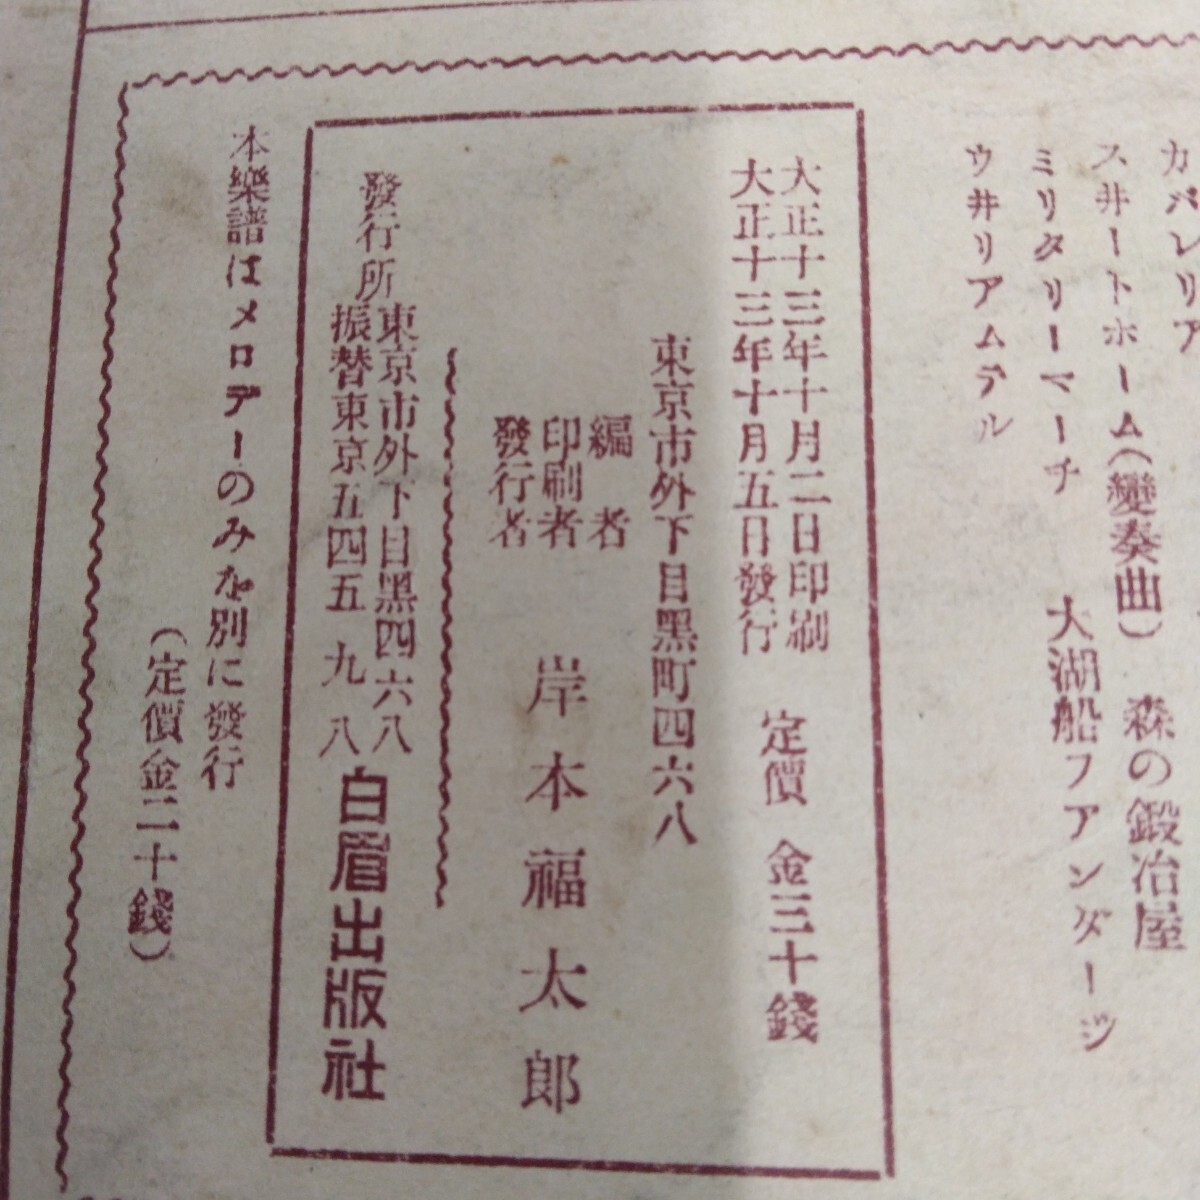 カバレリア
スヰートホーム(變奏曲) 森の鍛冶屋
ミリタリーマーチ 大湖船フアンタージ
ウヰリアムテル
大正十三年十月二日印刷
大正十三年十月五日發行
定價 金三十錢
東京市外下目黑町四六八
編者
印刷者
發行者
岸本福太郎
發行所
東京市外下目黑四六八
振替東京五四五九八
白眉出版社
本樂譜はメロデーのみを別に發行
(定價金二十錢)